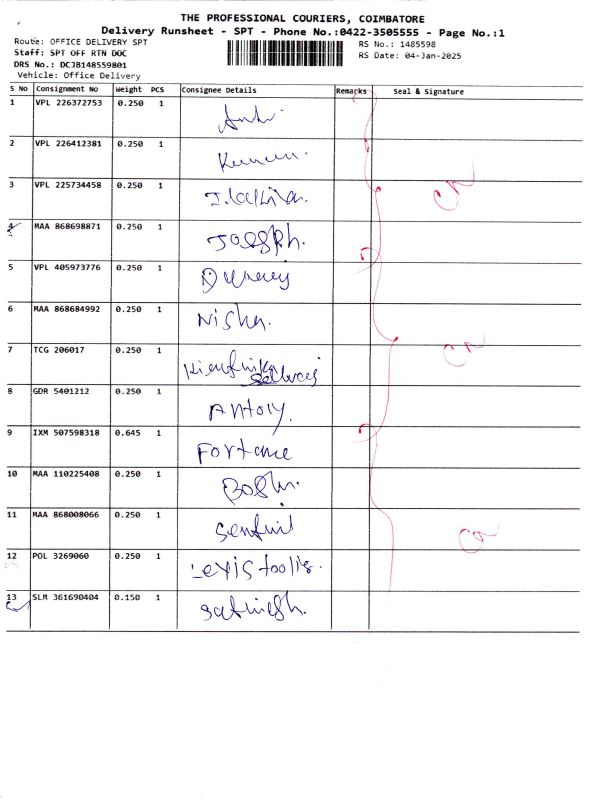 THE PROFESSIONAL COURIERS, COIMBATORE
Delivery Runsheet - SPT - Phone No.:0422-3505555 - Page No.:1
Route: OFFICE DELIVERY SPT
RS No.: 1485598
Staff: SPT OFF RTN DOC
RS Date: 04-Jan-2025
DRS No.: DCJB148559801
Vehicle: Office Delivery
S No Consignment No Weight PCS Consignee Details Remarks Seal & Signature
1 VPL 226372753 0.250 1
2 VPL 226412381 0.250 1
3 VPL 225734458 0.250 1
4 MAA 868698871 0.250 1 Joesph.
5 VPL 405973776 0.250 1
6 MAA 868684992 0.250 1 Nisha.
7 TCG 206017 0.250 1
8 GDR 5401212 0.250 1 Antoly.
9 IXM 507598318 0.645 1 Fortune
10 MAA 110225408 0.250 1
11 MAA 868008066 0.250 1 Senthil
12 POL 3269060 0.250 1 Lexis tools.
13 SLM 361690404 0.150 1 Sathiesh.